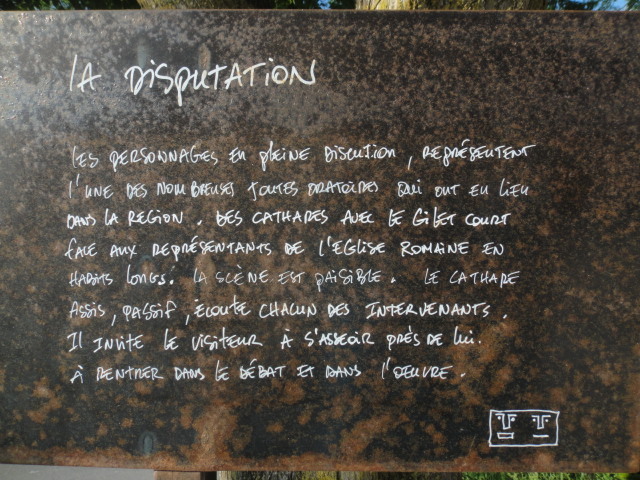 LA DISPUTATION
LES PERSONNAGES EN PLEINE DISCUTION, REPRÉSENTENT
L'UNE DES NOMBREUSES JOUTES ORATOIRES QUI ONT EU LIEU
DANS LA REGION. DES CATHARES AVEC LE GILET COURT
FACE AUX REPRÉSENTANTS DE L'EGLISE ROMAINE EN
HABITS LONGS. LA SCÈNE EST PAISIBLE. LE CATHARE
ASSIS, PASSIF, ÉCOUTE CHACUN DES INTERVENANTS.
Il INVITE LE VISITEUR À S'ASSEOIR PRÈS DE LUI.
À RENTRER DANS LE DÉBAT ET DANS L'OEUVRE.